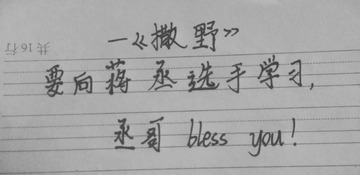 共16行
一《撒野》
要向蒋丞选手学习,
丞哥 bless you!